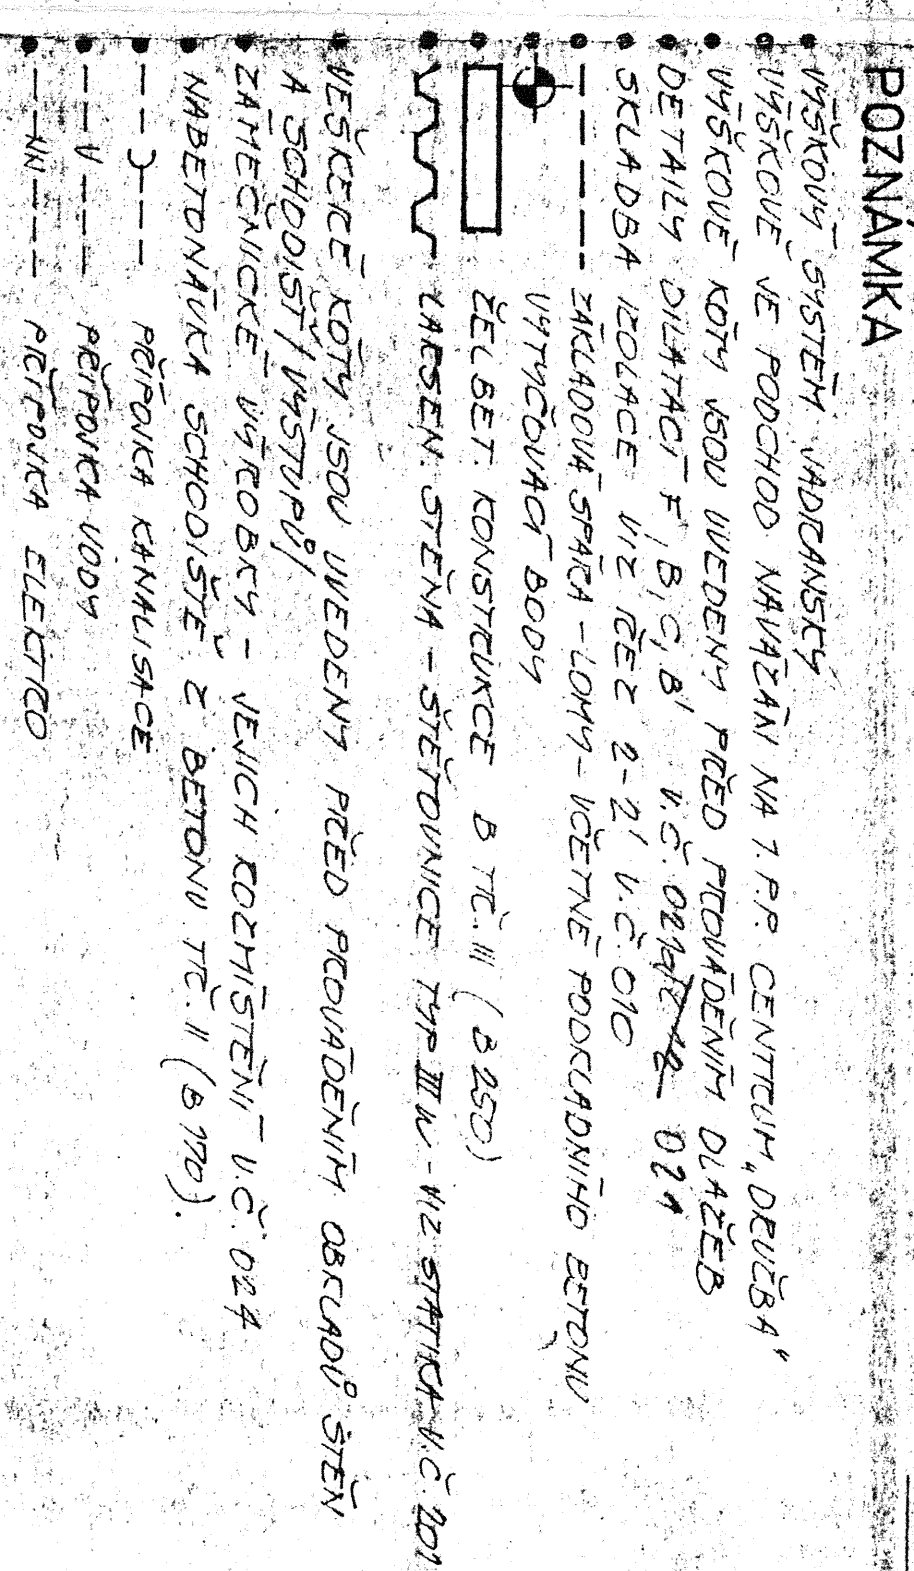 POZNÁMKA
VÝŠKOVÝ SYSTÉM JADRANSKÝ
VÝŠKOVĚ JE PODCHOD NAVÁZÁN NA 1.P.P. CENTRUM „DRUŽBA“
VÝŠKOVÉ KÓTY JSOU UVEDENY PŘED PROVÁDĚNÍM DLAŽEB
DETAILY DILATACÍ F, B, C, B' V.Č. 021
SKLADBA IZOLACE VIZ ŘEZ 2-2' V.Č. 010
ZÁKLADOVÁ SPÁRA - LOMY - VČETNĚ PODKLADNÍHO BETONU
VYTYČOVACÍ BODY
ŽEL.BET. KONSTRUKCE B TŘ. III (B 250)
LARSEN. STĚNA - ŠTĚTOVNICE TYP III W - VIZ STATIKA V.Č. 201
VEŠKERÉ KÓTY JSOU UVEDENY PŘED PROVÁDĚNÍM OBKLADŮ STĚN
A SCHODIŠŤ /VÝSTUPŮ/
ZÁMEČNICKÉ VÝROBKY - JEJICH ROZMÍSTĚNÍ V.Č. 024
NABETONÁVKA SCHODIŠTĚ Z BETONU TŘ. II (B 170).
PŘÍPOJKA KANALISACE
V PŘÍPOJKA VODY
NN PŘÍPOJKA ELEKTRO